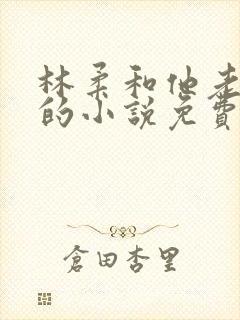 林柔和他走
的小說免費
倉田杏里